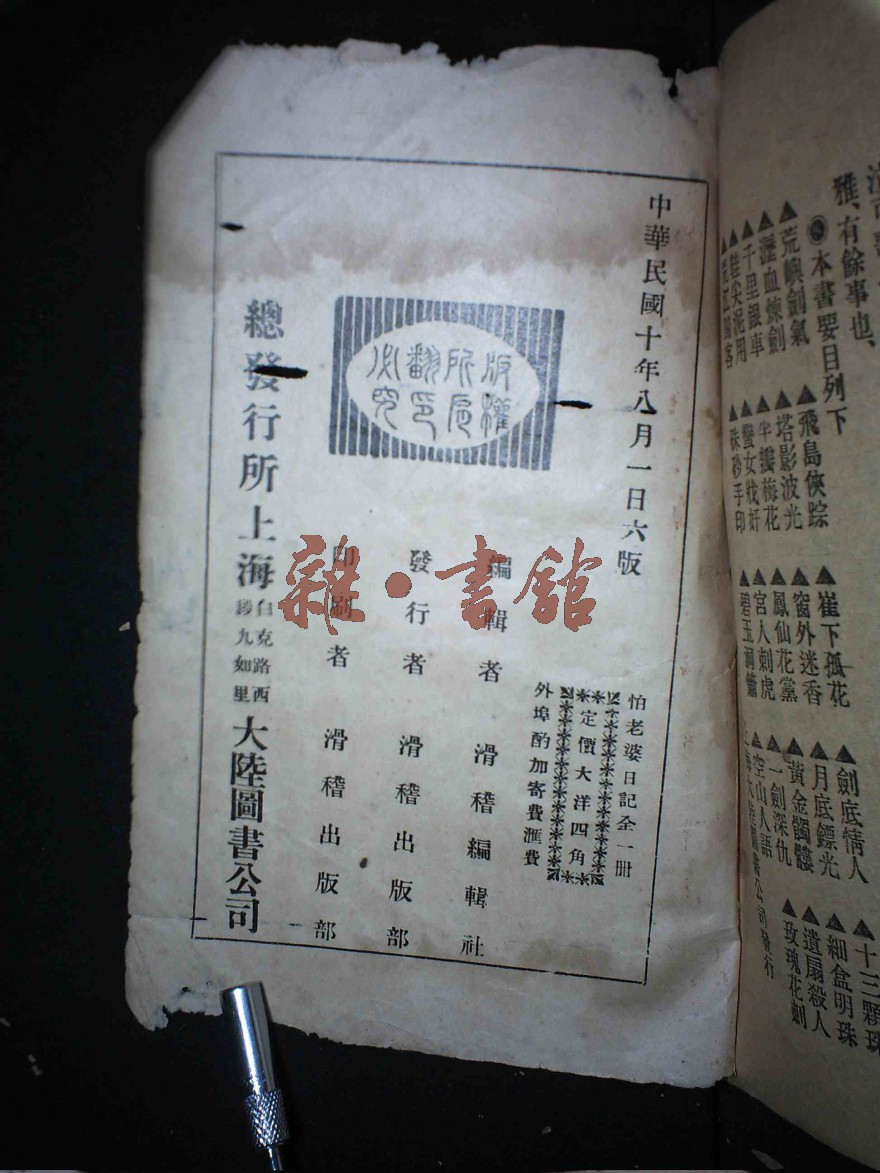 雅、有餘事也、
◉本書要目列下
▲荒嶼劍氣
▲瀝血煉劍
▲千里銀車
▲飛島俠踪
▲塔影波光
▲半瓣梅花
▲蠻女戕奸
▲硃砂手印
▲崔下孤花
▲窗外迷香
▲鳳仙花黨
▲宮人刺虎
▲劍底情人
▲月底鏢光
▲黃金髑髏
▲一劍深仇
▲空山人語
▲十三顆珠
▲細盒明珠
▲遺扇殺人
▲玫瑰花刺
上海大陸圖書公司發行
中華民國十年八月一日六版
怕老婆日記全一册
定價大洋四角
外埠酌加寄費匯費
版權
所有
翻印
必究
編輯者 滑稽編輯社
發行者 滑稽出版部
印刷者 滑稽出版部
總發行所上海白克路西段九如里大陸圖書公司
雜·書館